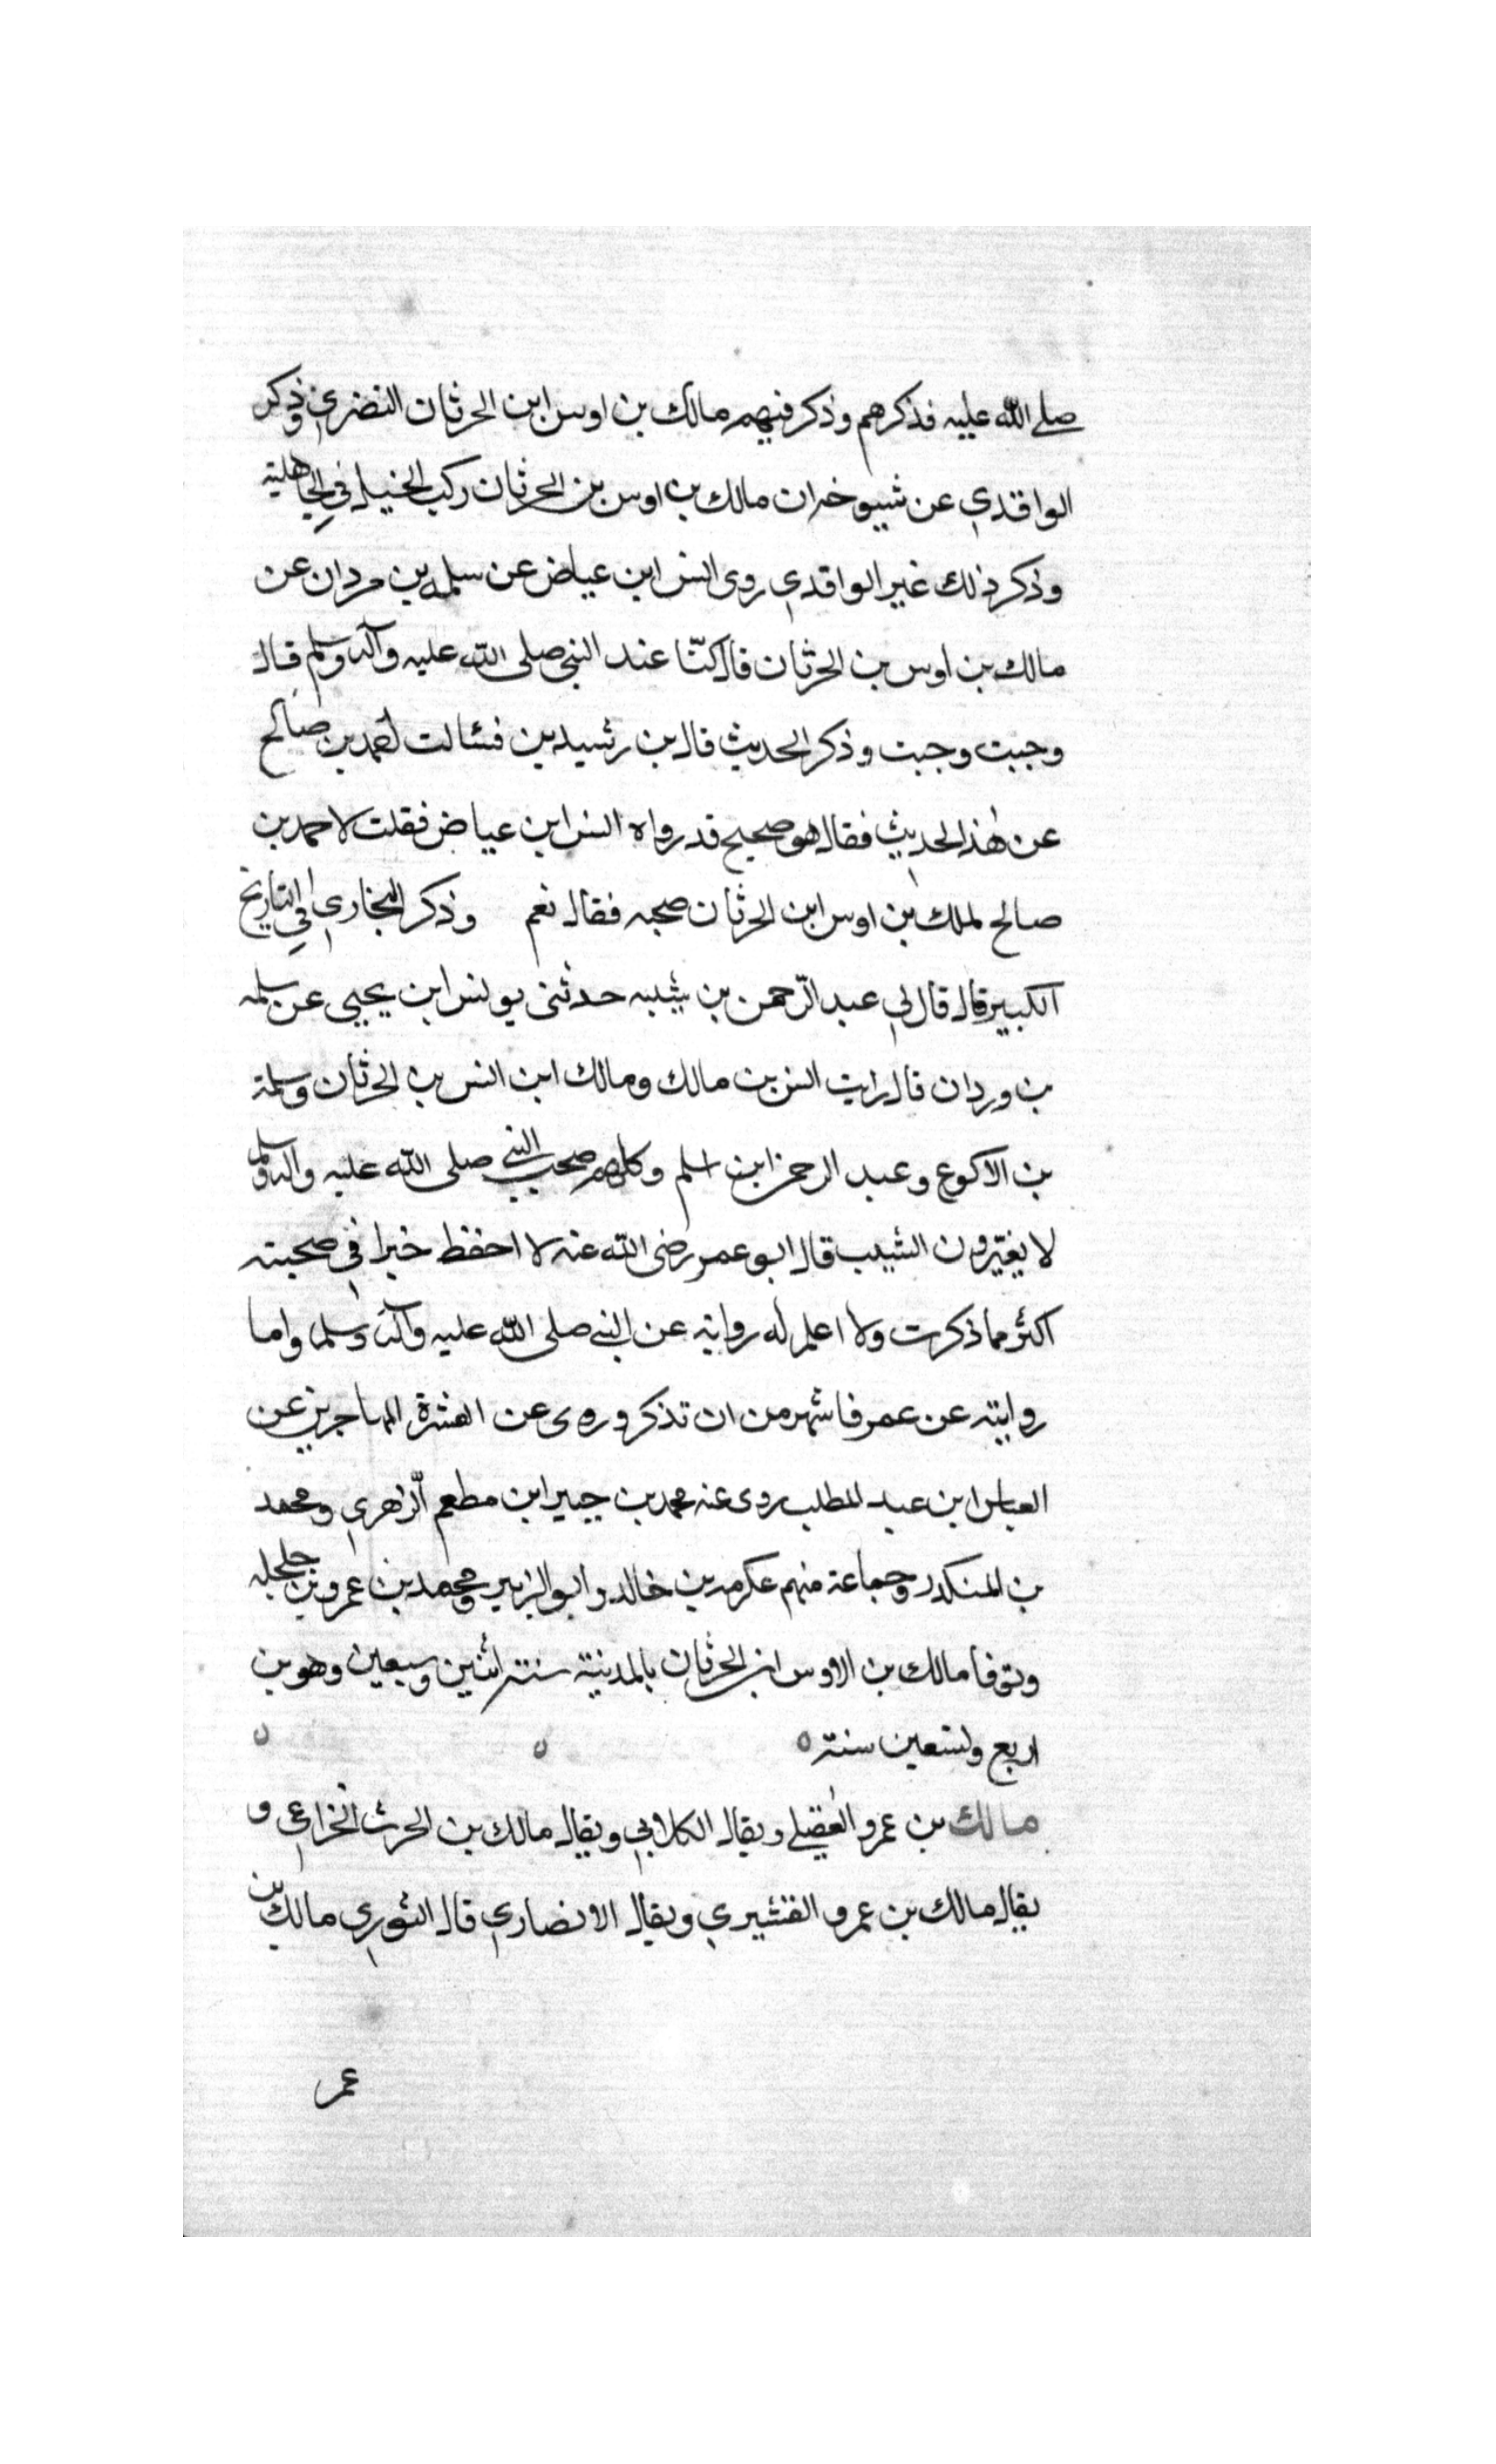 صلى الله عليه فذكرهم وذكر فيهم مالك بن اوس ابن الحرثان النضري وذكر
الواقدي عن شيوخه ان مالك بن اوس بن الحرثان ركب الخيل في الجاهلية
وذكر ذلك غير الواقدي روى انس ابن عياض عن سلمه بن مردان عن
مالك بن اوس بن الحرثان قال كنّا عند النبي صلى الله عليه وآله وسلم قال
وجبت وجبت وذكر الحديث قال بن رشيدين فسالت احمد بن صالح
عن هذا الحديث فقال هو صحيح قد رواه انس ابن عياض فقلت لاحمد بن
صالح لملك بن اوس ابن الحرثان صحبه فقال نعم وذكر البخاري في التاريخ
الكبير قال قال لي عبد الرّحمن بن شيبه حدثنى يونس ابن يحيى عن سلمه
بن وردان قال رايت انس بن مالك ومالك ابن انس بن الحرثان وسلمة
بن الاكوع وعبد الرحمن ابن اسلم وكلهم صحب النبي صلى الله عليه واله وسلم
لا يغيّرون الشيب قال ابو عمر رضى الله عنه لا احفظ خبرا في صحبته
اكثر مما ذكرت ولا اعلم له رواية عن النبي صلى الله عليه وآله وسلم واما
روايته عن عمر فاشهر من ان تذكر وروى عن العشرة المهاجرين عن
العباس ابن عبد المطلب روى عنه محمد بن جبير ابن مطعم الزهري ومحمد
بن المنكدر وجماعة منهم عكرمه بن خالد وابو الزبير ومحمد بن عمرو بن حلحله
وتوفا مالك بن الاوس ابن الحرثان بالمدينة سنة اثنين وسبعين وهو بن
اربع وتسعين سنة ه
مالك بن عمرو العقيلي ويقال الكلابي ويقال مالك بن الحرث الخزاعي و
يقال مالك بن عمرو القشيري ويقال الانصاري قال الثوري مالك بن
عمر